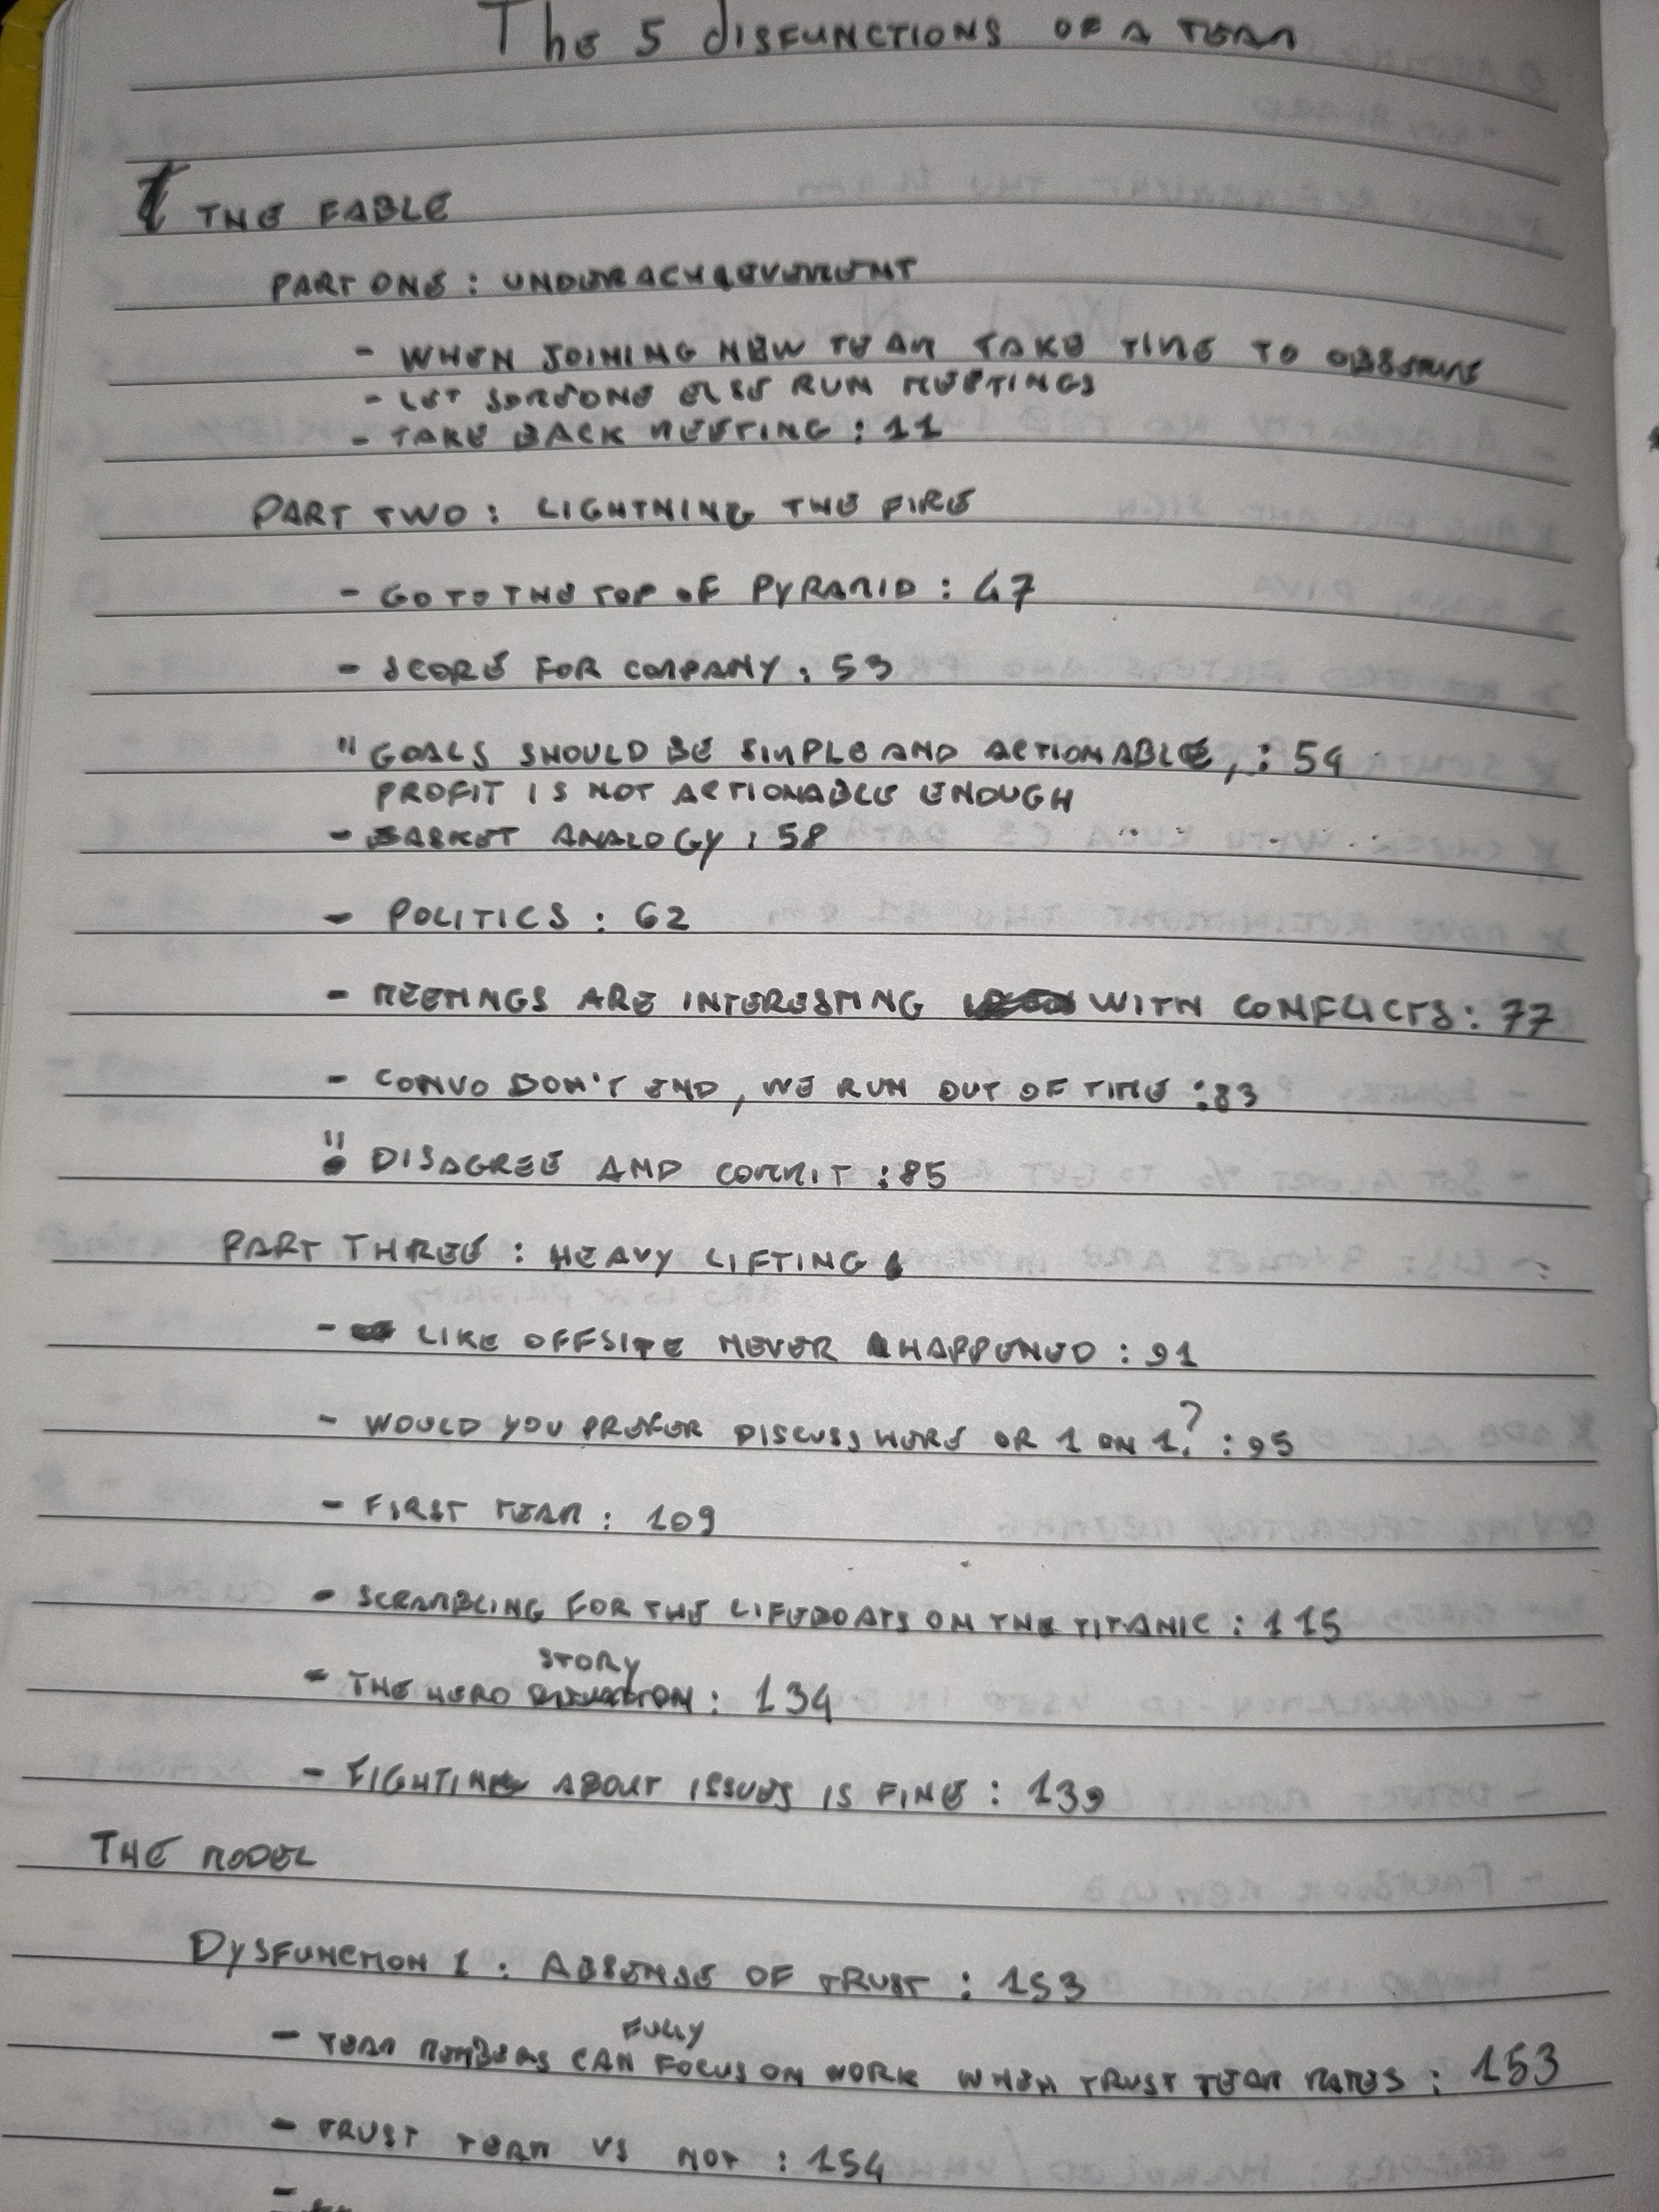 The 5 DISFUNCTIONS OF A TEAM
THE FABLE
PART ONE : UNDERACHIEVEMENT
- WHEN JOINING NEW TEAM TAKE TIME TO OBSERVE
- LET SOMEONE ELSE RUN MEETINGS
- TAKE BACK MEETING : 11
PART TWO : LIGHTNING THE FIRE
- GO TO THE TOP OF PYRAMID : 47
- SCORE FOR COMPANY : 53
" GOALS SHOULD BE SIMPLE AND ACTIONABLE, : 54
PROFIT IS NOT ACTIONABLE ENOUGH
- BASKET ANALOGY : 58
- POLITICS : 62
- MEETINGS ARE INTERESTING WITH CONFLICTS : 77
- CONVO DON'T END, WE RUN OUT OF TIME : 83
" DISAGREE AND COMMIT : 85
PART THREE : HEAVY LIFTING
- LIKE OFFSITE NEVER HAPPENED : 91
- WOULD YOU PREFER DISCUSS HERE OR 1 ON 1? : 95
- FIRST TEAM : 109
- SCRAMBLING FOR THE LIFEBOATS ON THE TITANIC : 115
- THE HERO STORY : 134
- FIGHTING ABOUT ISSUES IS FINE : 139
THE MODEL
DYSFUNCTION 1 : ABSENSE OF TRUST : 153
- TEAM MEMBERS CAN FULLY FOCUS ON WORK WHEN TRUST TEAM MATES : 153
- TRUST TEAM VS NOT : 154